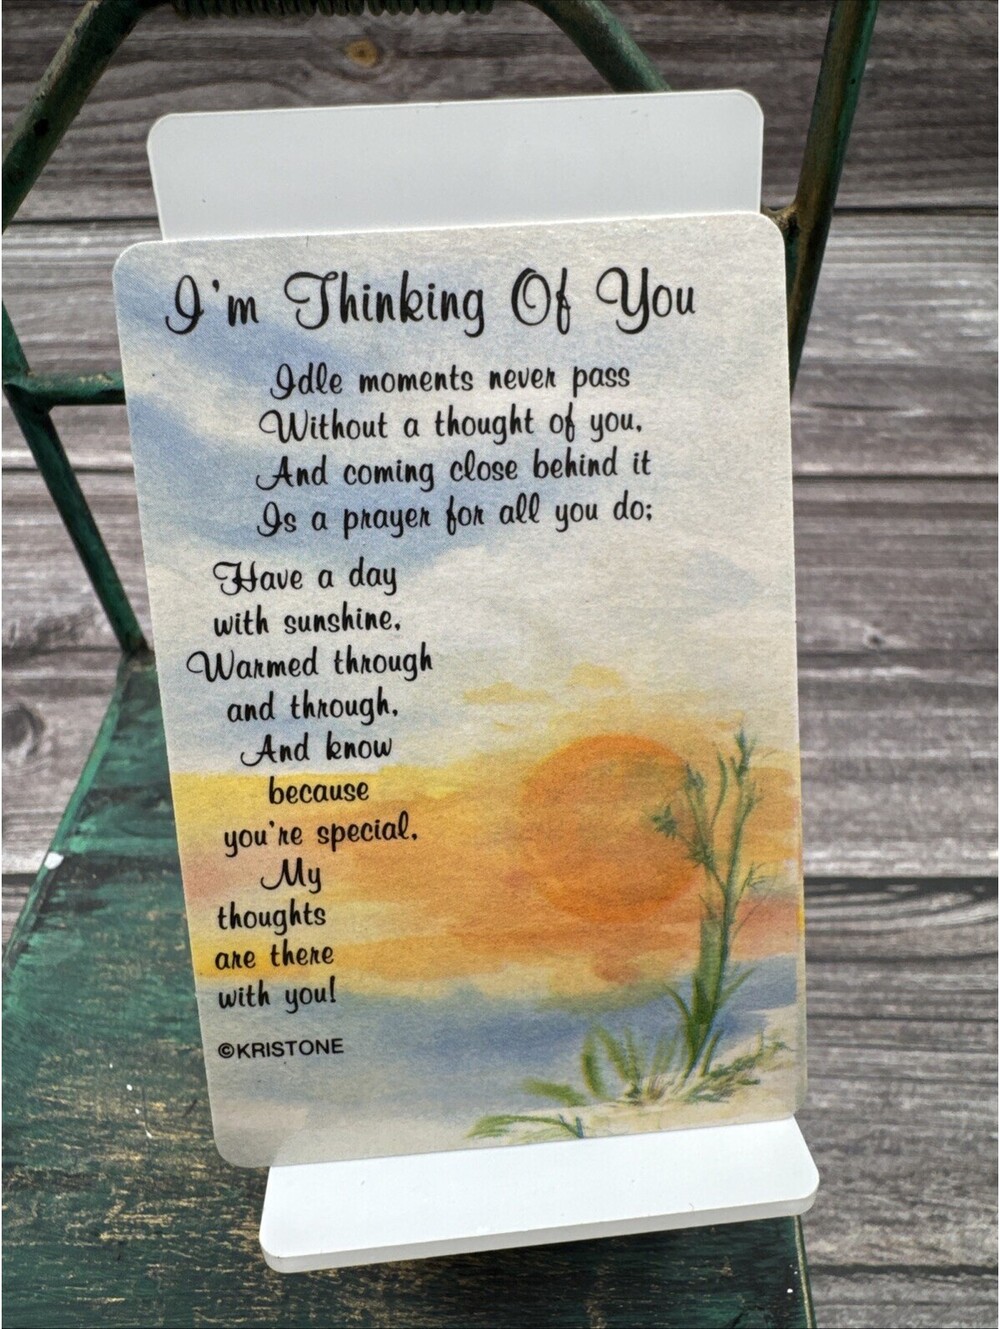 I'm Thinking Of You
Idle moments never pass
Without a thought of you,
And coming close behind it
Is a prayer for all you do;
Have a day
with sunshine,
Warmed through
and through,
And know
because
you're special,
My
thoughts
are there
with you!
©KRISTONE